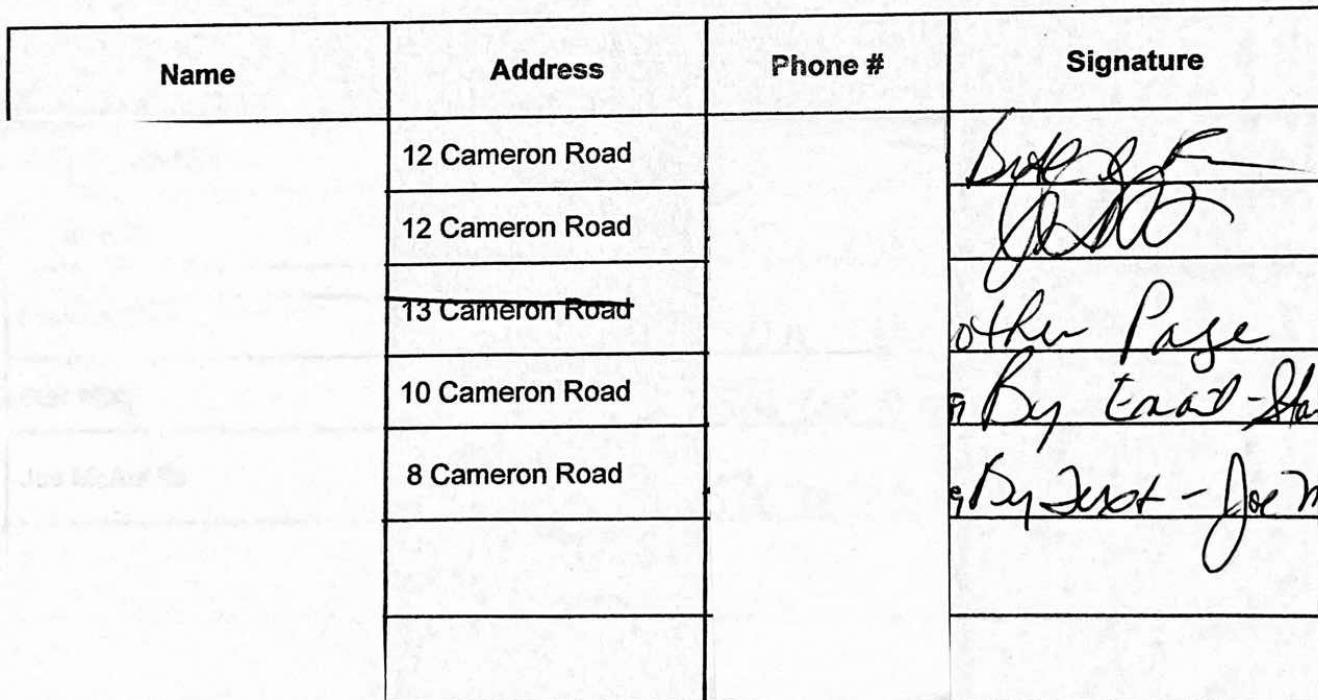 Name Address Phone # Signature
12 Cameron Road
12 Cameron Road
13 Cameron Road other Page
10 Cameron Road By Email -
8 Cameron Road By Text - Joe